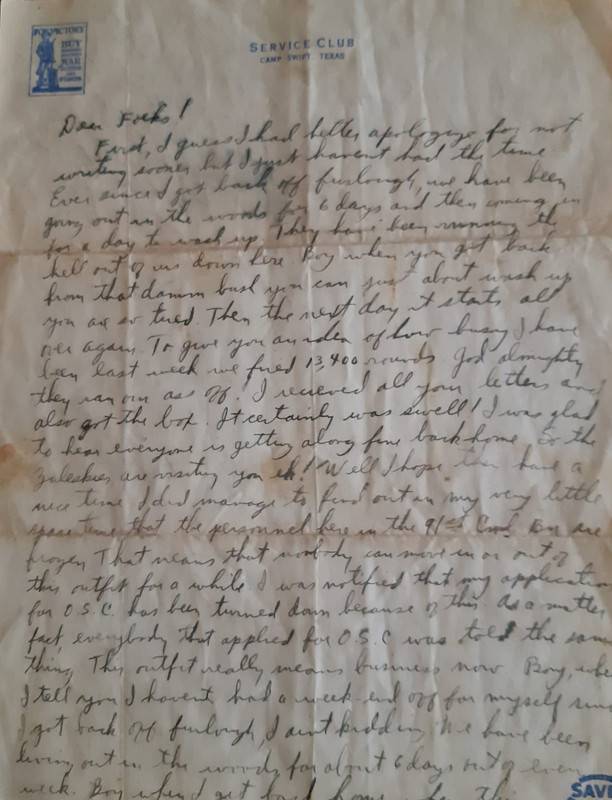 FOR VICTORY
BUY
WAR
SERVICE CLUB
CAMP SWIFT, TEXAS
Dear Folks!
First, I guess I had better apologize for not
writing sooner but I just havent had the time
Ever since I got back off furlough, we have been
going out in the woods for 6 days and then coming in
for a day to wash up. They have been running the
hell out of us down here Boy when you get back
from that damm bush you can just about wash up
you are so tired. Then the next day it starts all
over again. To give you an idea of how busy I have
been last week we fired 13,400 rounds. God almighty
they ran our ass off! I recieved all your letters and
also got the box. It certainly was swell! I was glad
to hear everyone is getting along fine back home. So the
Zaleskies are visiting you eh! Well I hope they have a
nice time. I did manage to find out in my very little
spare time that the personnel here in the 91st are
frozen. That means that noobody can move in or out of
this outfit for a while. I was notified that my application
for O.S.C. has been turned down because of this. As a matter
fact, everybody that applied for O.S.C was told the same
thing. This outfit really means business now. Boy, when
I tell you I havent had a week-end off for myself since
I got back off furlough, I aint kidding. We have been
living out in the woods for about 6 days out of every
week. Boy when I get back home
SAVE